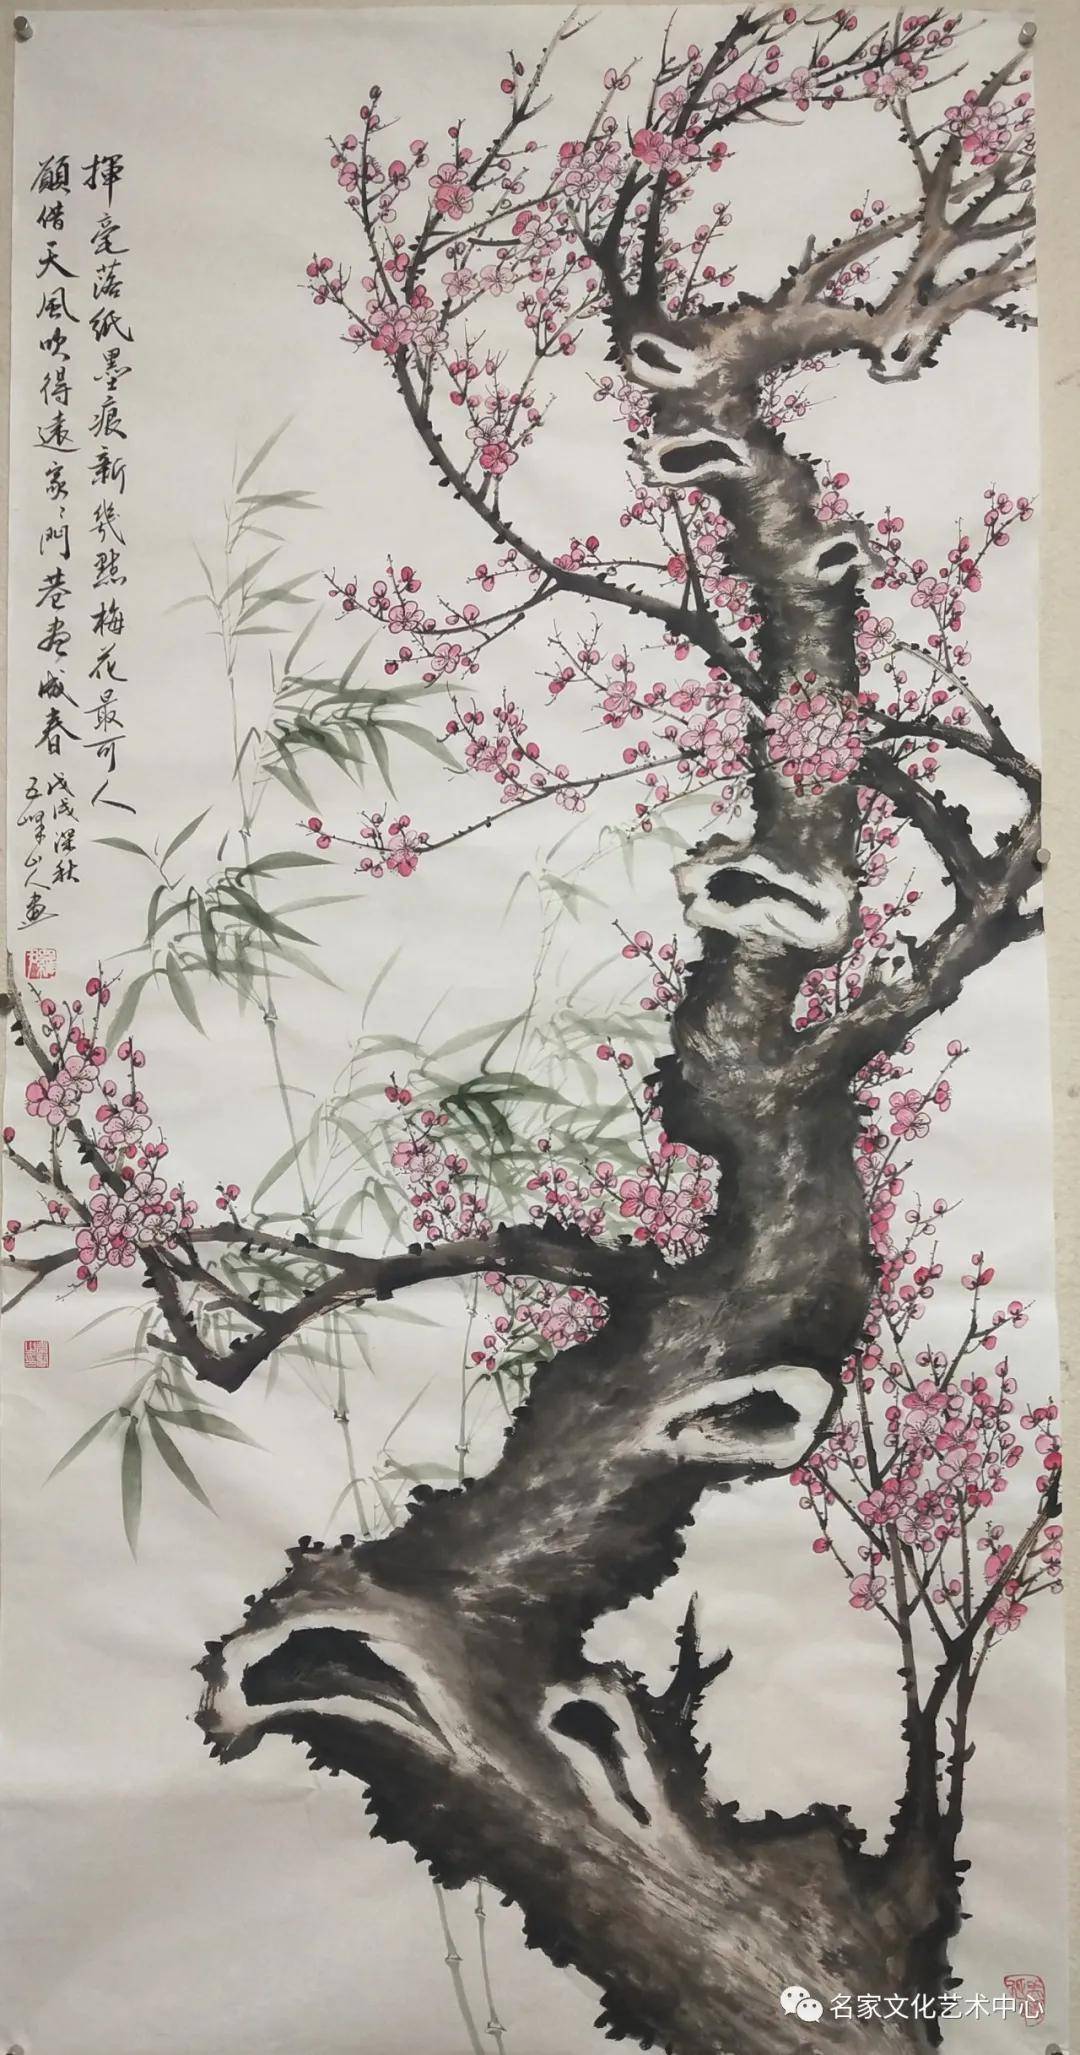 揮毫落紙墨痕新幾點梅花最可人
願借天風吹得遠家々門巷盡成春
戊戌深秋
五峰山人畫
名家文化艺术中心